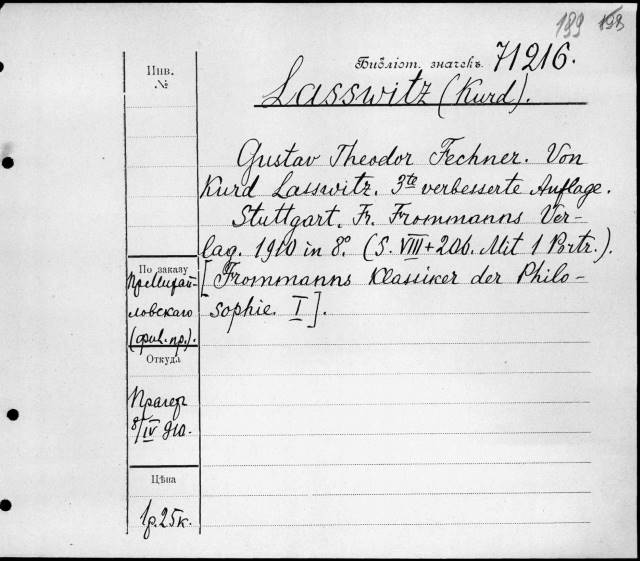 199
Библіот. значекъ 71216.
Инв.
№
Lasswitz (Kurd).
Gustav Theodor Fechner. Von
Kurd Lasswitz. 3te verbesserte Auflage.
Stuttgart. Fr. Frommanns Ver-
lag. 1910 in 8º. (S. VIII+206. Mit 1 Portr.).
[Frommanns Klassiker der Philo-
sophie. I].
По заказу
ловскаго
Откуда
Прагеръ
8/IV 910.
Цѣна
1р.25к.